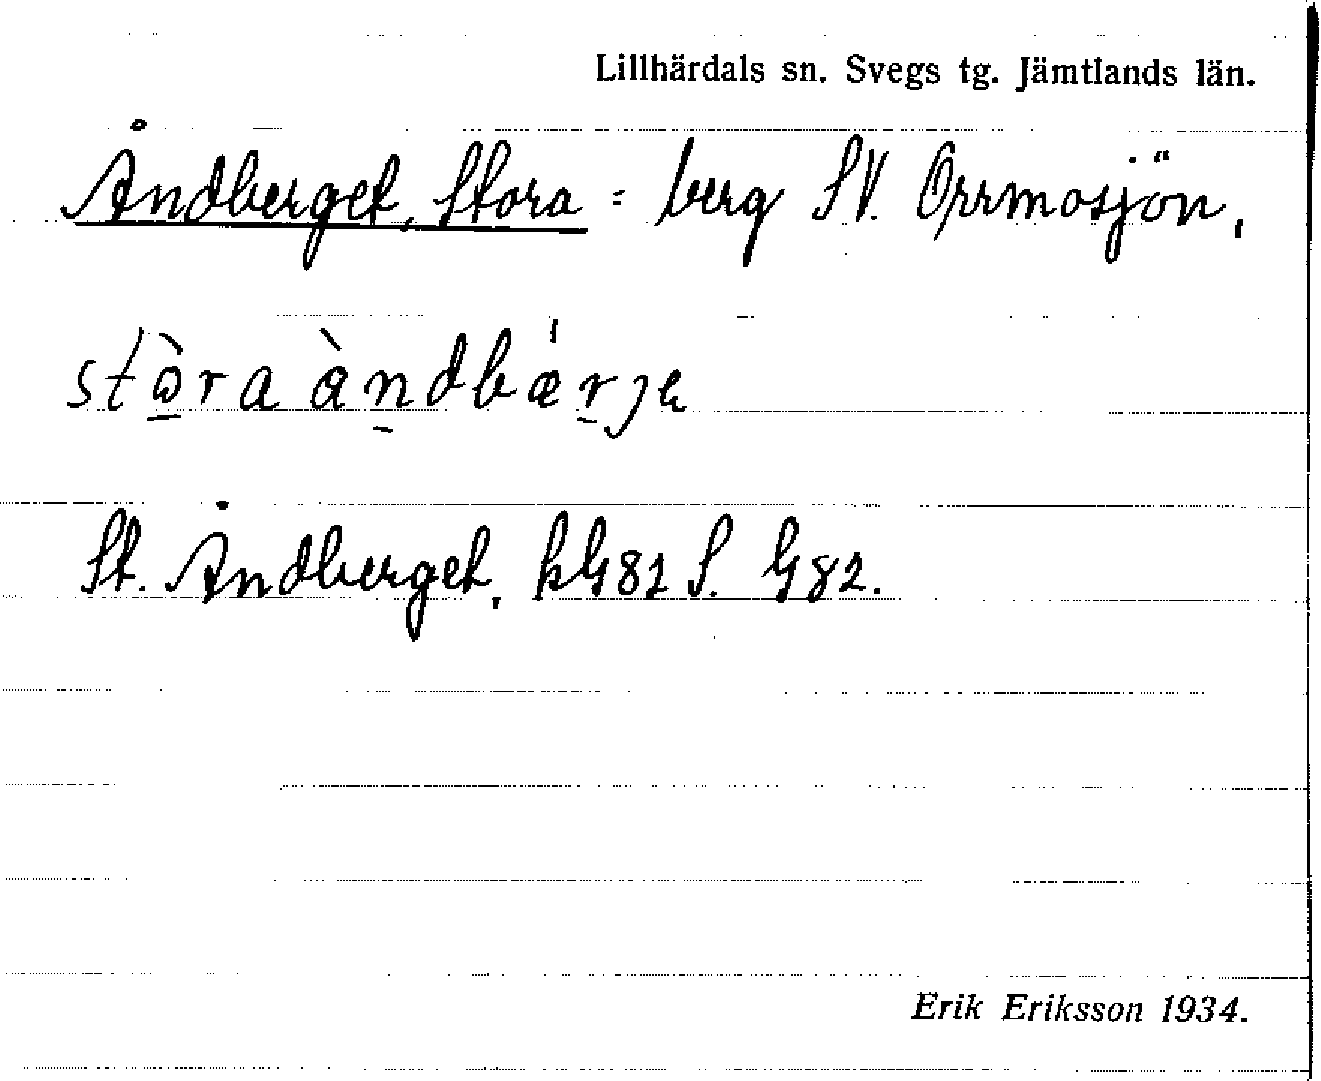 Lillhärdals sn. Svegs tg. Jämtlands län.
Åndberget, Stora = berg SV. Orrmosjön,
stò̱ra àṉdbǽṟje
St. Åndberget, kG82 S. G82.
Erik Eriksson 1934.